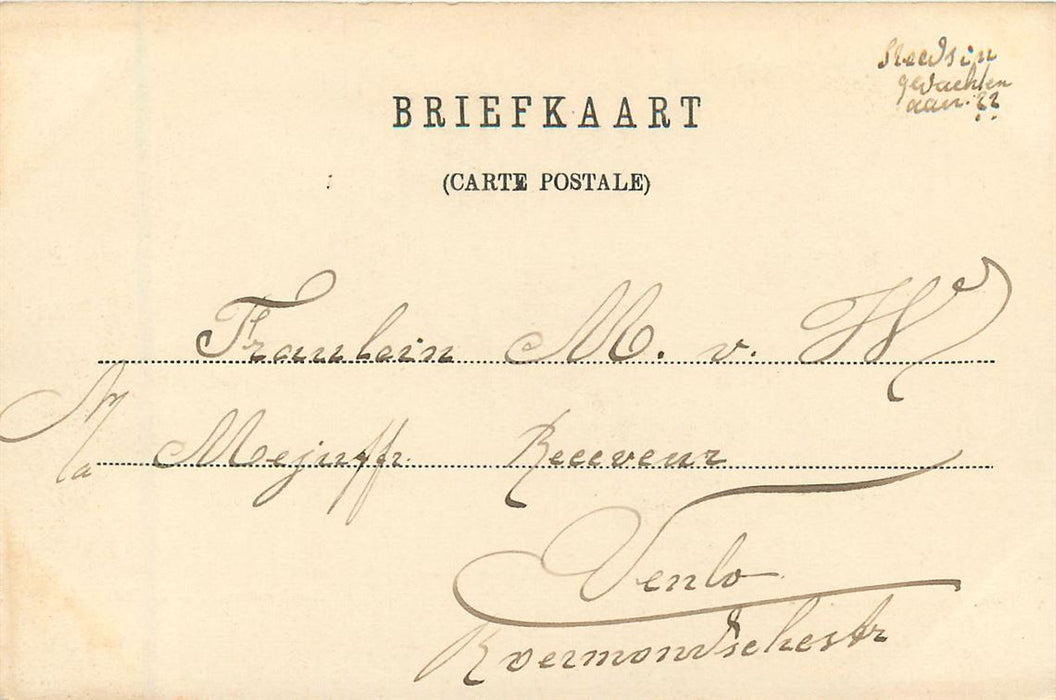 Steeds in
gedachten
aan. ??
BRIEFKAART
(CARTE POSTALE)
Fraulein M. v. W
p/a Mejuffr. Receveur
Venlo
Roermondschestr